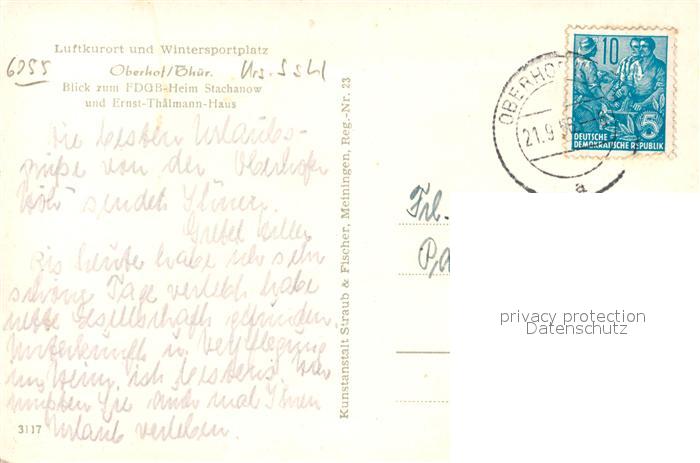 Luftkurort und Wintersportplatz
6055
Oberhof/Thür.
Krs. Suhl
Blick zum FDGB-Heim Stachanow
und Ernst-Thälmann-Haus
Die besten Urlaubs-
grüße von der Oberhofer
sendet Ihnen
Gretel
Bis heute habe ich sehr
schöne Tage verlebt habe
nette Gesellschaft gefunden.
Unterkunft u. Verpflegung
im Heim ist bestens. Hier
müßten Sie auch mal Ihren
Urlaub verleben.
3117
Kunstanstalt Straub & Fischer, Meiningen, Reg.-Nr. 23
OBERHOF
21.9
a
10
DEUTSCHE
DEMOKRATISCHE REPUBLIK
5
Frl.
privacy protection
Datenschutz